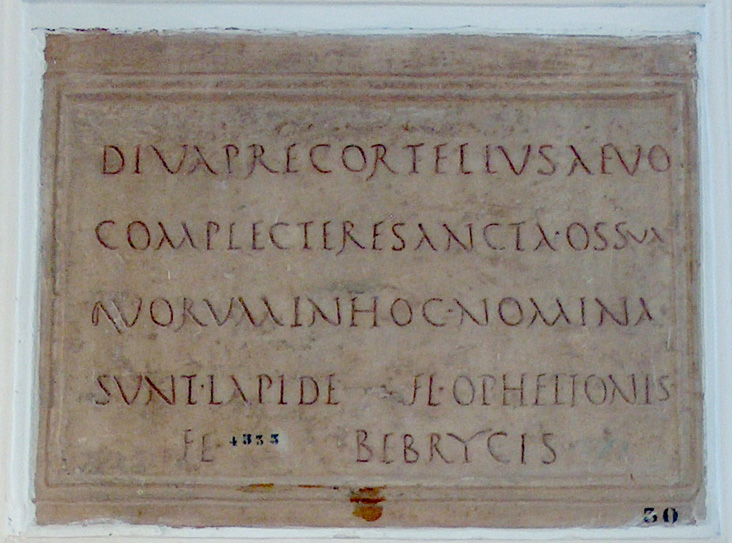 DIVAPRECORTELLUSAEVO
COMPLECTERESANCTA·OSSUA
QVORVMINHOC·NOMINA·
SVNT·LAPIDE FL·OPHELIONIS
FE 4333 BEBRYCIS
30